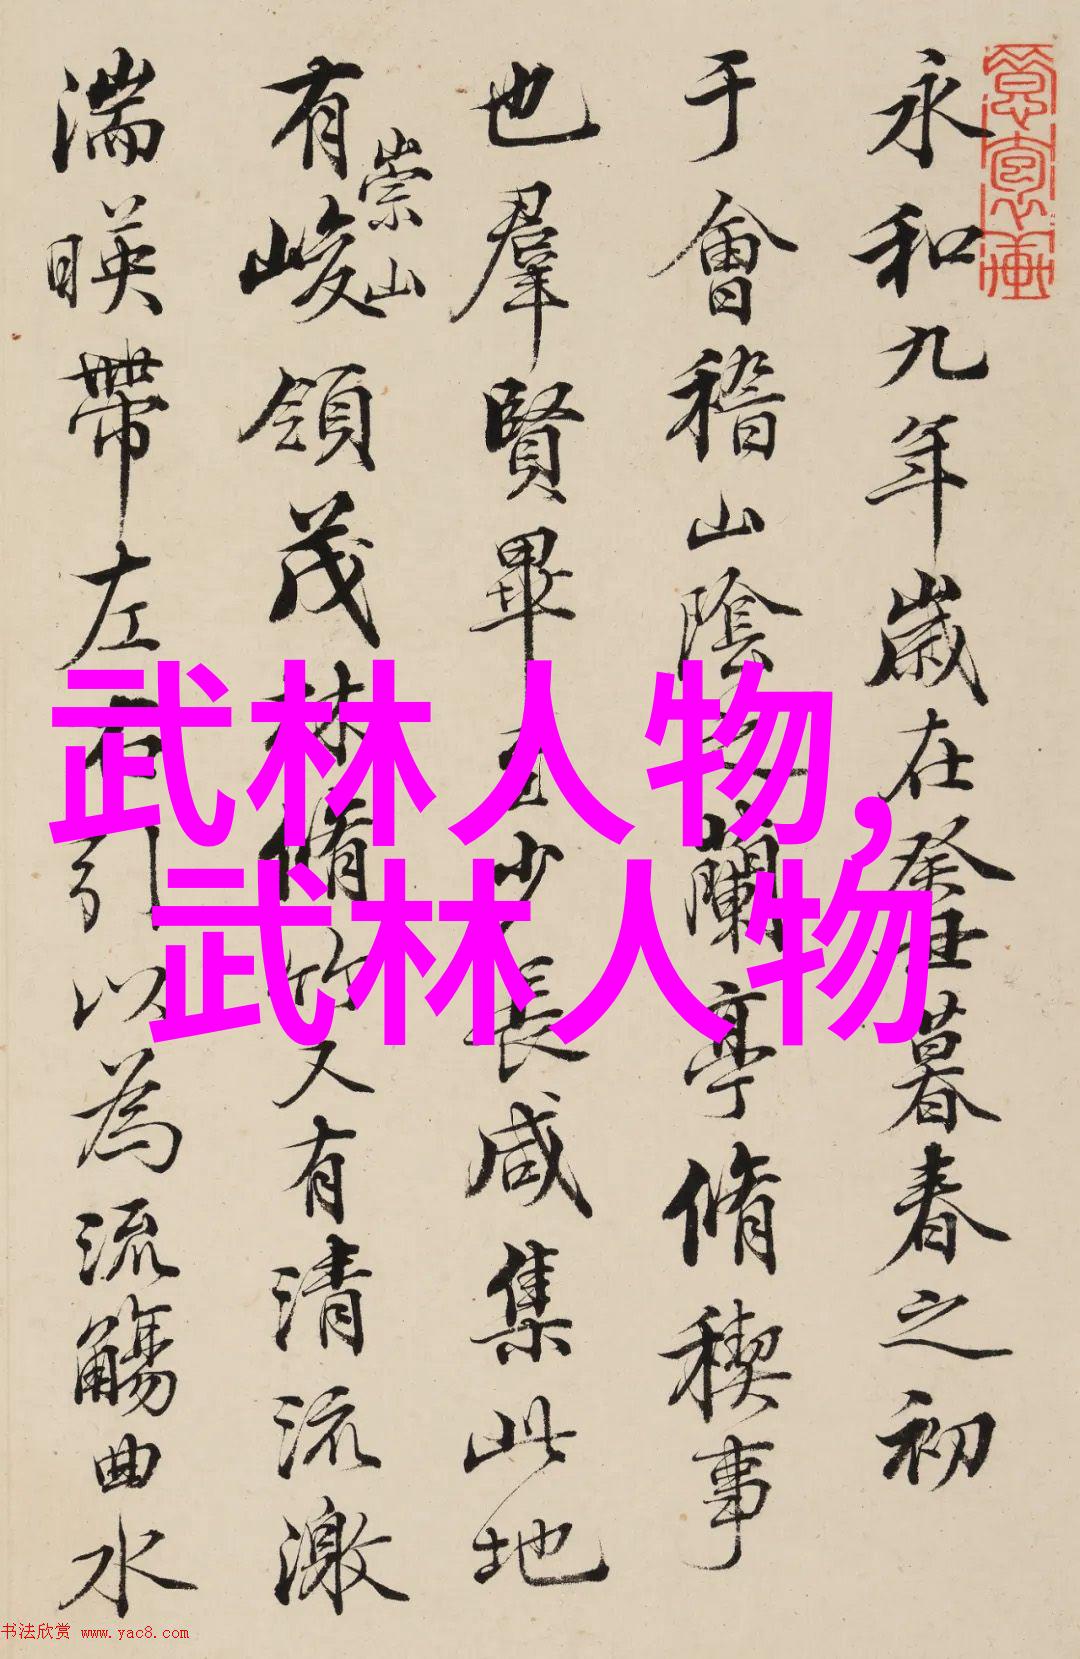 永和九年歲在癸丑暮春之初
于會稽山陰之蘭亭脩稧事
也羣賢畢至少長咸集此地
有崇山峻領茂林脩竹又有清流激
湍暎帶左右引以為流觴曲水
武林人物,
武林人物
书法欣赏 www.yac8.com